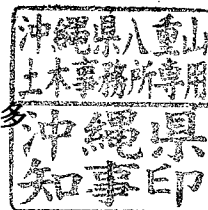 沖縄県八重山
土木事務所専用
沖縄県
知事印
多